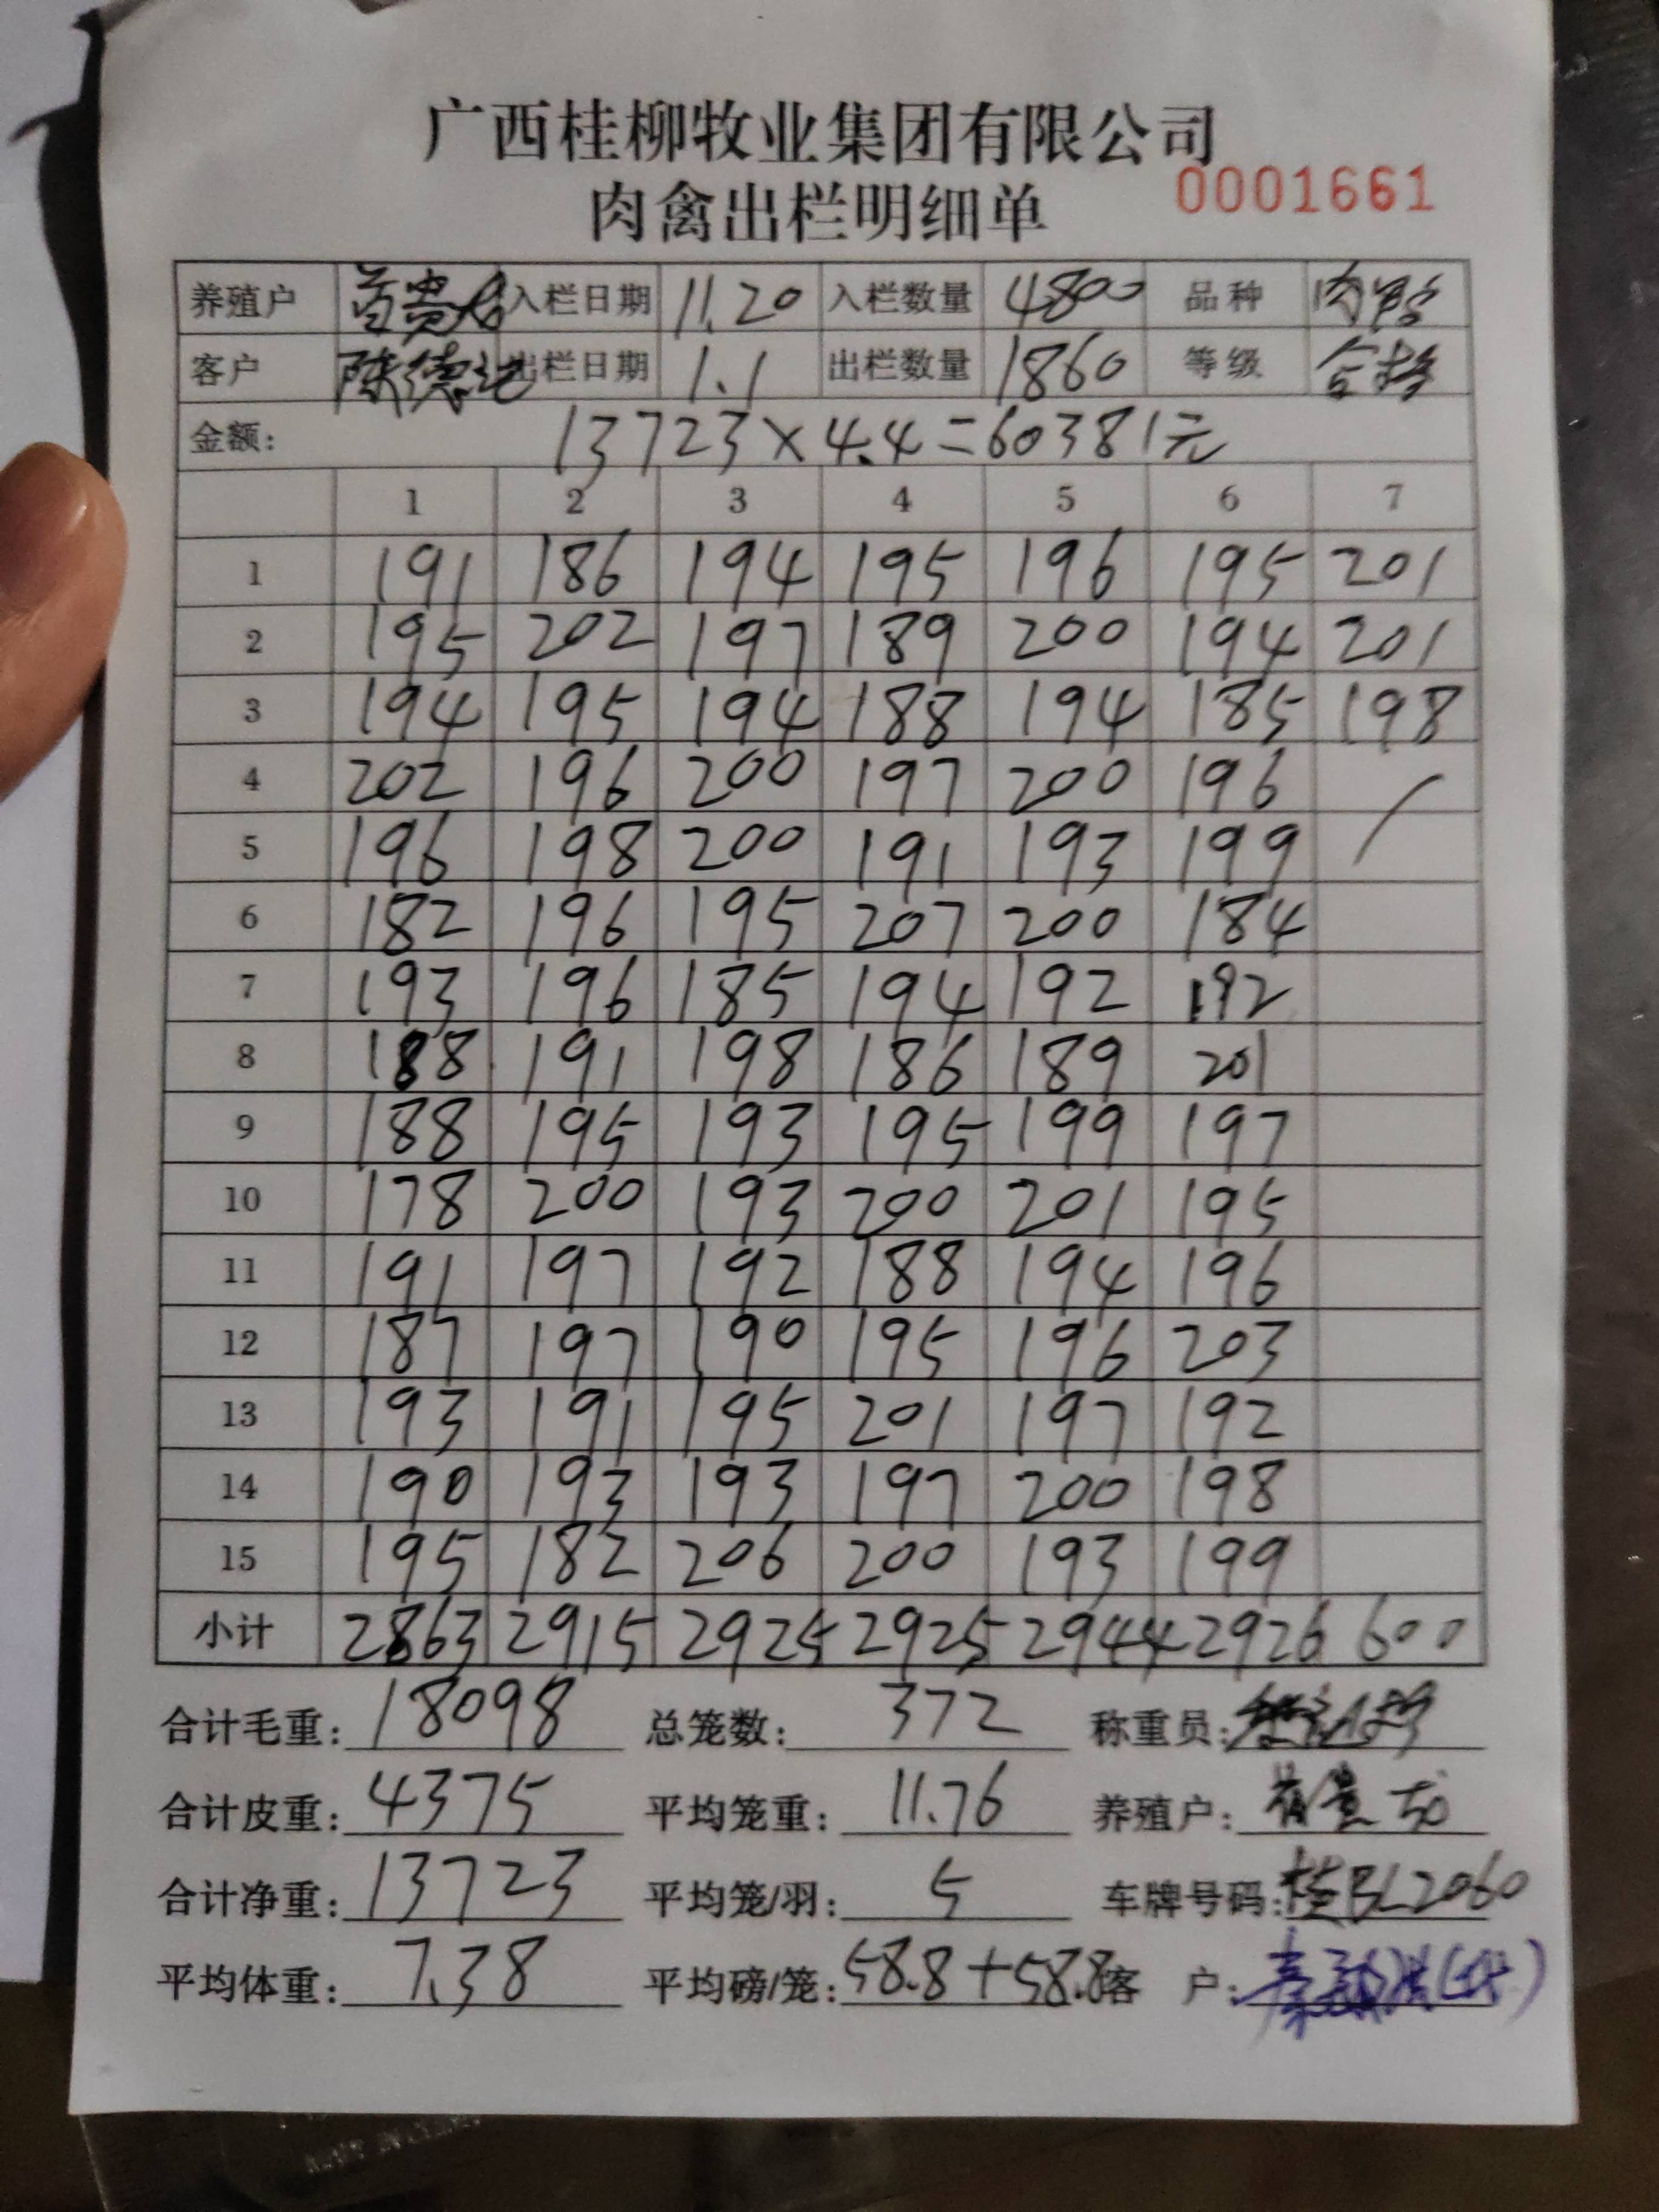 广西桂柳牧业集团有限公司
肉禽出栏明细单 0001661
养殖户 入栏日期 11.20 入栏数量 4800 品种 肉鸭
客户 陈德 出栏日期 1.1 出栏数量 1860 等级 合格
金额: 13723×4.4=60381元
1 2 3 4 5 6 7
1 191 186 194 195 196 195 201
2 195 202 197 189 200 194 201
3 194 195 194 188 194 185 198
4 202 196 200 197 200 196
5 196 198 200 191 193 199
6 182 196 195 207 200 184
7 193 196 185 194 192 192
8 188 191 198 186 189 201
9 188 195 193 195 199 197
10 178 200 193 200 201 195
11 191 197 192 188 194 196
12 187 197 190 195 196 203
13 193 191 195 201 197 192
14 190 193 193 197 200 198
15 195 182 206 200 193 199
小计 2863 2915 2925 2925 2944 2926 600
合计毛重: 18098 总笼数: 372 称重员:
合计皮重: 4375 平均笼重: 11.76 养殖户:
合计净重: 13723 平均笼/羽: 5 车牌号码: 桂BL2060
平均体重: 7.38 平均磅/笼: 58.8+58.8 客 户: